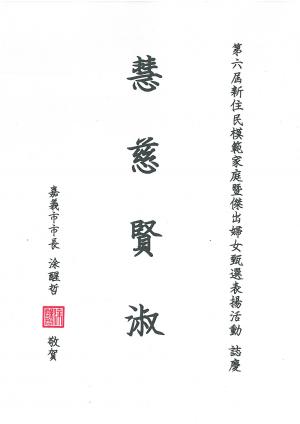 第六屆新住民模範家庭暨傑出婦女甄選表揚活動 誌慶
慧慈賢淑
嘉義市市長 涂醒哲 敬賀